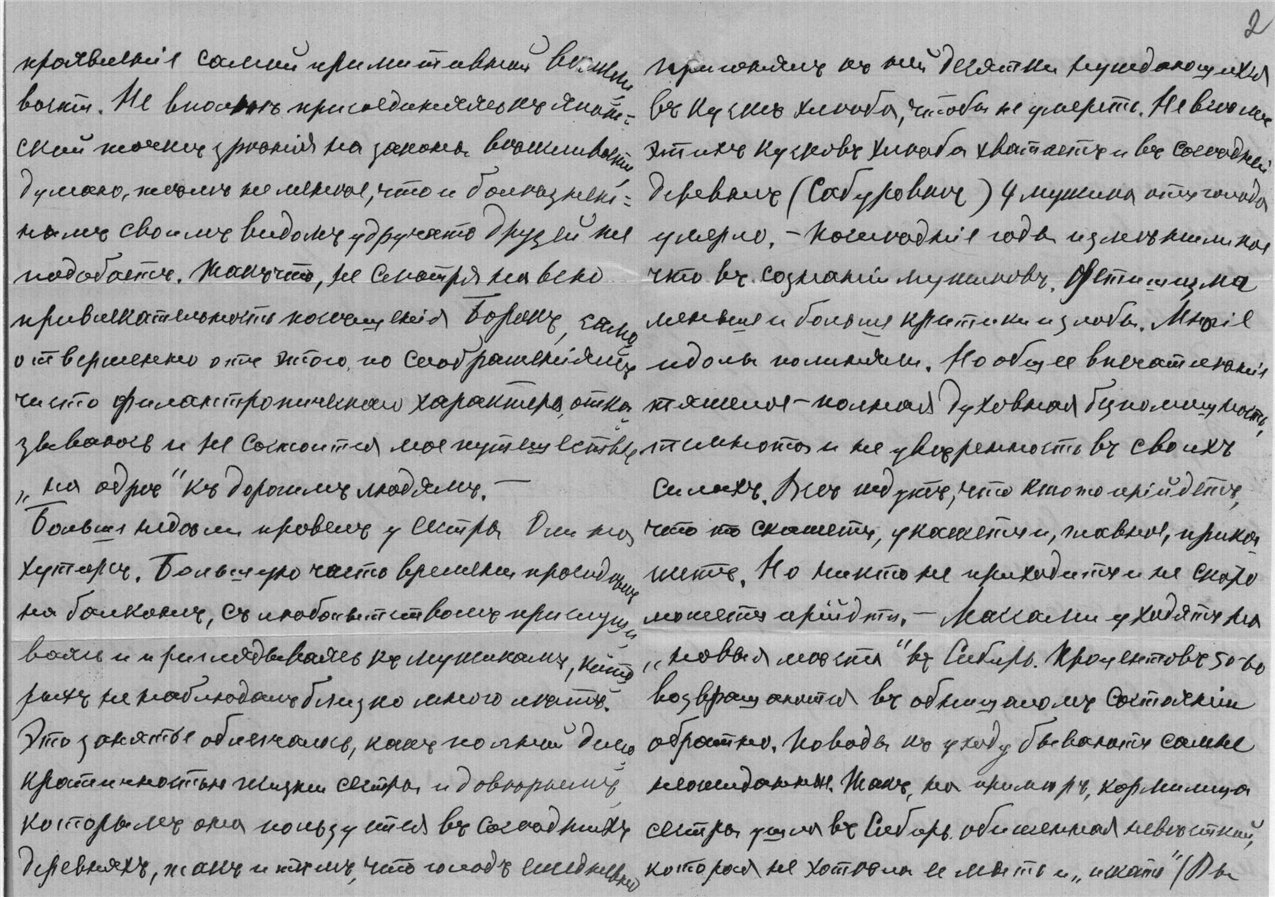 2
проявленіе самой примитивной вѣжли-
вости. Не вполнѣ присоединяясь къ япон-
ской точкѣ зрѣнія на законы вѣжливости,
думаю, тѣмъ не менѣе, что и болѣзнен-
нымъ своимъ видомъ удручать друзей не
подобаетъ. Такъ что, не смотря на всю
привлекательность посѣщенія Борокъ, само-
отверженно отъ этого по соображеніямъ
чисто филантропическаго характера отка-
зываюсь и не состоится мое путешествіе
„на одрѣ" къ дорогимъ людямъ. —
Больше недѣли провелъ у сестры Оли на
хуторѣ. Большую часть времени просидѣлъ
на балконѣ, съ любопытствомъ прислуши-
ваясь и приглядываясь къ мужикамъ, кото-
рыхъ не наблюдалъ близко много лѣтъ.
Это занятье облегчалось, какъ полной демо-
кратичностью жизни сестры и довѣріемъ,
которымъ она пользуется въ сосѣднихъ
деревняхъ, такъ и тѣмъ, что голодъ ежедневно
пригонялъ къ ней десятки нуждающихся
въ кускѣ хлѣба, чтобы не умереть. Не всѣмъ
этихъ кусковъ хлѣба хватаетъ и въ сосѣдней
деревнѣ (Сабуровкѣ) 4 мужика отъ голода
умерло. — Послѣдніе годы измѣнили кое
что въ сознаніи мужиковъ. Фетишизма
меньше и больше критики и злобы. Многіе
идолы полиняли. Но общее впечатлѣніе
тяжелое — полная духовная безпомощность,
темнота и не увѣренность въ своихъ
силахъ. Всѣ ждутъ, что кто то прійдетъ,
что то скажетъ, укажетъ и, главное, прика-
жетъ. Но никто не приходитъ и не скоро
можетъ прійдти. — Массами уходятъ на
„новыя мѣста" въ Сибирь. Процентовъ 50-60
возвращаются въ обнищаломъ состояніи
обратно. Поводы къ уходу бываютъ самые
неожиданные. Такъ, на примѣръ, кормилица
сестры ушла въ Сибирь обиженная невѣсткой,
которая не хотѣла ее мыть и „искать" (Вы